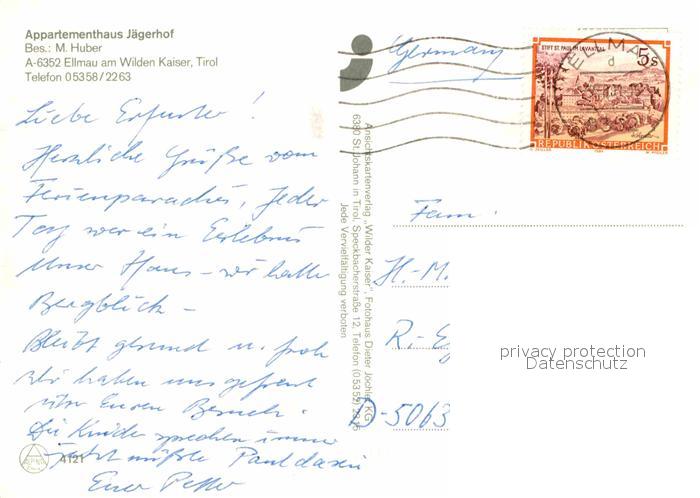 Appartementhaus Jägerhof
Bes.: M. Huber
A-6352 Ellmau am Wilden Kaiser, Tirol
Telefon 05358/2263
Liebe Erfurter!
Herzliche Grüße vom
Ferienparadies, Jeder
Tag war ein Erlebnis
Unser Haus - wir hatte
Bergblick -
Bleibt gesund u. froh
Wir haben uns gefreut
über Euren Besuch.
Die Kinder sprechen immer
jetzt müßte Paul da sein
Euer
4121
Ansichtskartenverlag „Wilder Kaiser", Fotohaus Dieter Jöchler KG
6380 St. Johann in Tirol, Speckbacherstraße 12, Telefon (05352)
Jede Vervielfältigung verboten
Germany
STIFT ST. PAUL IM LAVANTTAL
5s
ELLMAU
d
REPUBLIK ÖSTERREICH
Fam.
H.-M.
R.-E
D-5063
privacy protection
Datenschutz